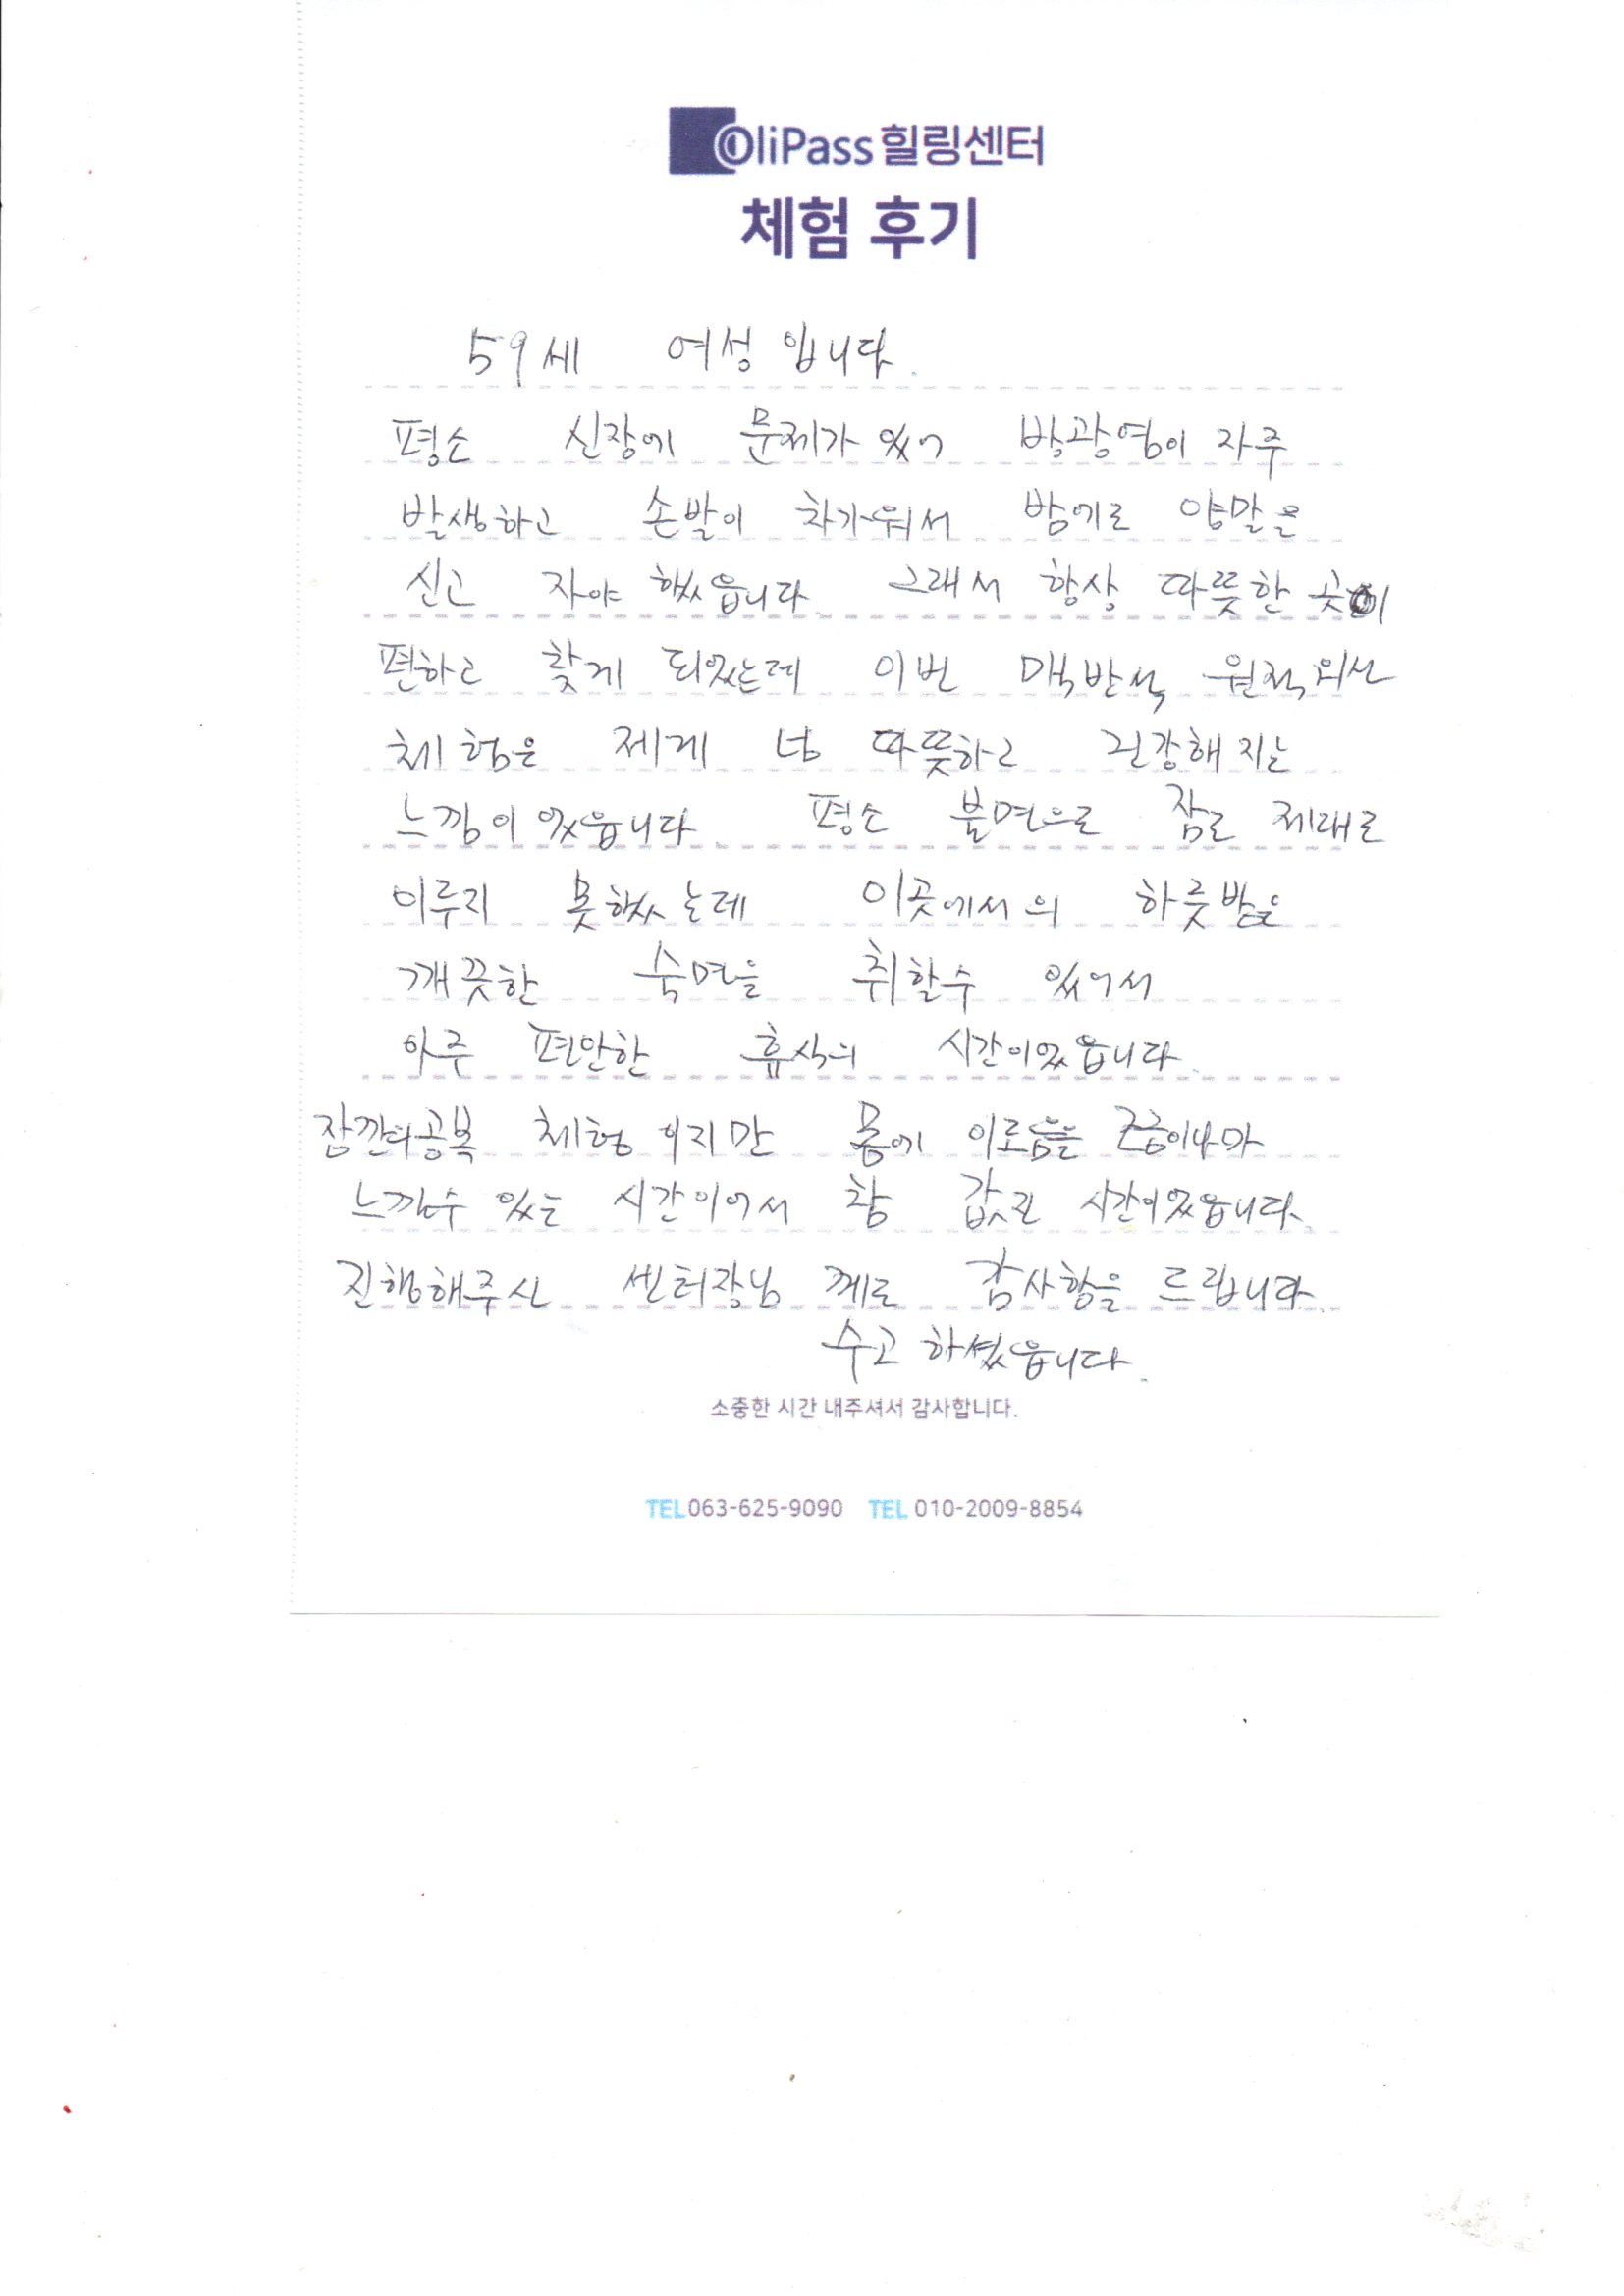 OliPass 힐링센터
체험 후기
59세 여성 입니다.
평소 신장에 문제가 있어 방광염이 자주
발생하고 손발이 차가워서 밤에도 양말을
신고 자야 했읍니다. 그래서 항상 따뜻한 곳이
편하고 찾게 되었는데 이번 맥반석 원적외선
체험은 제게 넘 따뜻하고 건강해 지는
느낌이 있읍니다. 평소 불면으로 잠도 제대로
이루지 못했는데 이곳에서의 하룻밤은
깨끗한 숙면을 취할수 있어서
아주 편안한 휴식의 시간이었읍니다.
잠깐의공복 체험 이지만 몸에 이로움을 조금이나마
느낄수 있는 시간이어서 참 값진 시간이었읍니다.
진행해주신 센터장님 께도 감사함을 드립니다.
수고 하셨읍니다.
소중한 시간 내주셔서 감사합니다.
TEL 063-625-9090 TEL 010-2009-8854